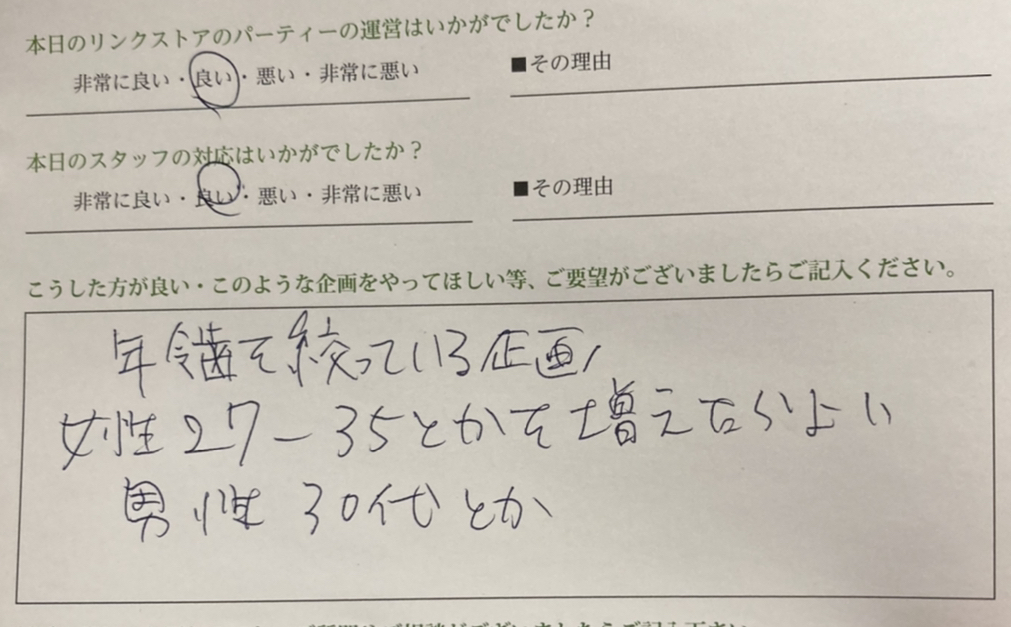 本日のリンクストアのパーティーの運営はいかがでしたか？
非常に良い・良い・悪い・非常に悪い
■その理由
本日のスタッフの対応はいかがでしたか？
非常に良い・良い・悪い・非常に悪い
■その理由
こうした方が良い・このような企画をやってほしい等、ご要望がございましたらご記入ください。
年齢を絞っている企画
女性27-35とかを増えたらよい
男性30代とか